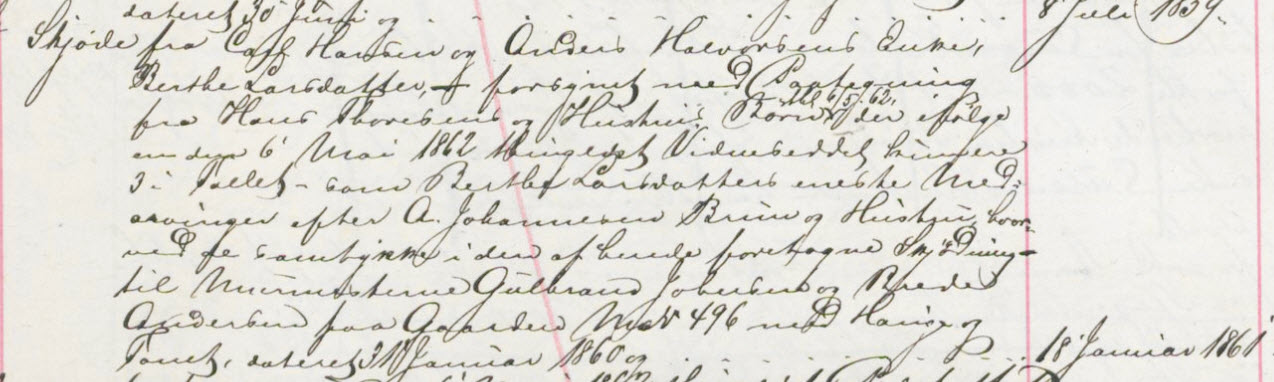 dateret 30 Juni og 8 Juli 1859.
Skjøde fra Carl Hansen og Anders Halvorsens Enke,
Berthe Larsdatter, + forsynet med Paategning
fra Hans Thoresens og Hustrus Børn dd. 6/5 62, der ifølge
en den 6 Mai 1862 thinglæst Vidneseddel kun ere
3 i Tallet – som Berthe Larsdatters eneste Med-
arvinger efter A. Johannesen Bruun og Hustru, hvor-
ved de samtykke i den af hende foretagne Skjødning
til Murmesterne Gulbrand Johnsen og Brede
Andersen paa Gaarden Mat N 496 med Hauge og
Tomt, dateret 31 Januar 1860 og 18 Januar 1861